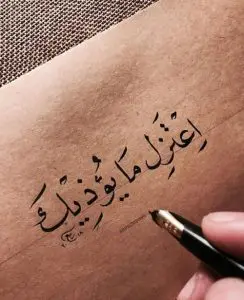 اِعْتَزِل مَا يُؤذِيْكَ